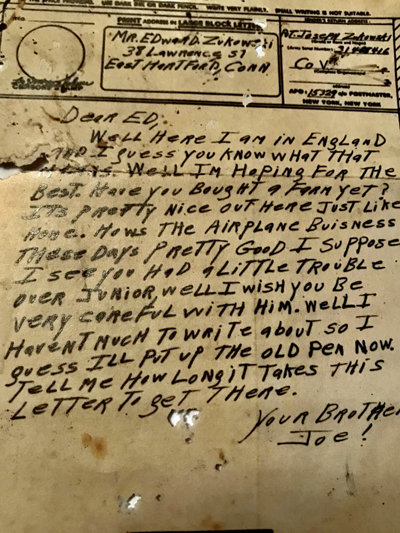 USE DARK INK OR DARK PENCIL. WRITE VERY PLAINLY. SMALL WRITING IS NOT SUITABLE.
PRINT ADDRESS IN LARGE BLOCK LETTERS
MR. EDWARD. ZUKOWSKI
38 LAWRENCE ST
EAST HARTFORD, CONN
PVT. JOSEPH. ZUKOWSKI
Co
APO: 15729 c/o POSTMASTER
NEW YORK, NEW YORK
DEAR ED,
WELL HERE I AM IN ENGLAND
AND I GUESS YOU KNOW WHAT THAT
WELL IM HOPING FOR THE
BEST. HAVE YOU BOUGHT A FARM YET?
ITS PRETTY NICE OUT HERE JUST LIKE
HOME. HOWS THE AIRPLANE BUISNESS
THESE DAYS PRETTY GOOD I SUPPOSE
I SEE YOU HAD A LITTLE TROUBLE
OVER JUNIOR, WELL I WISH YOU BE
VERY CAREFUL WITH HIM. WELL I
HAVEN'T MUCH TO WRITE ABOUT SO I
GUESS ILL PUT UP THE OLD PEN NOW.
TELL ME HOW LONG IT TAKES THIS
LETTER TO GET THERE.
YOUR BROTHER
JOE!